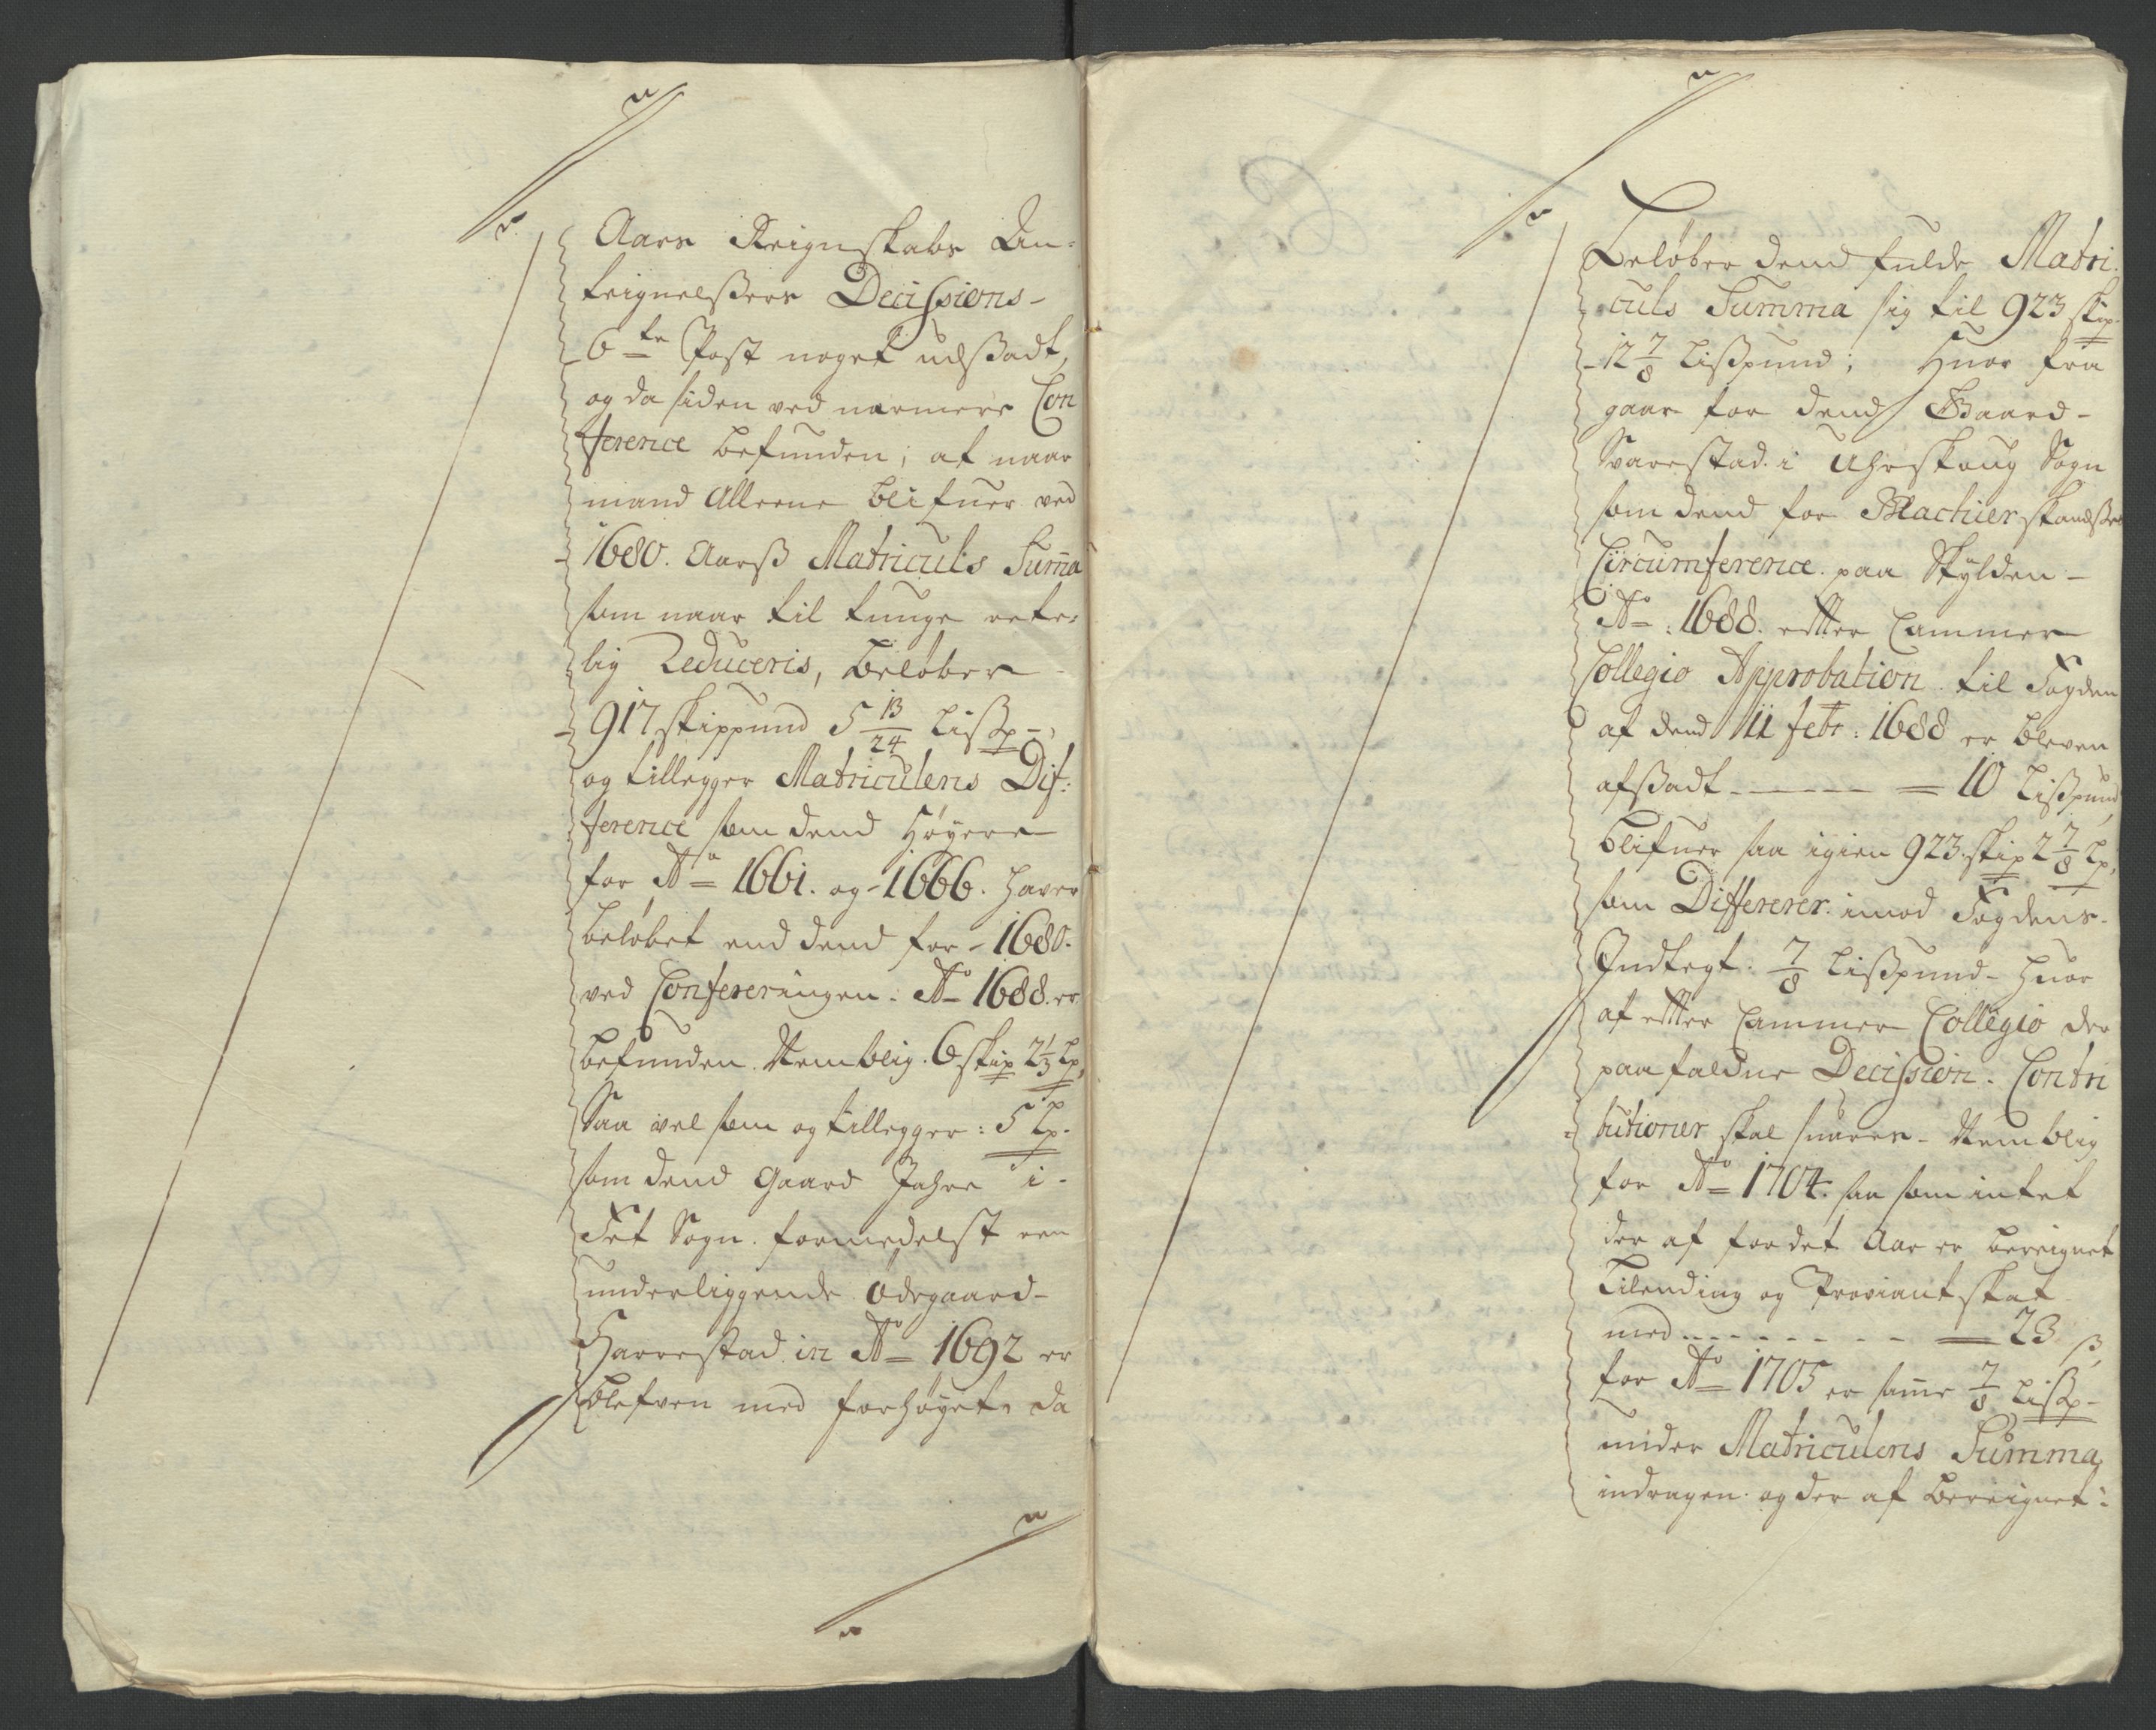 Aars Reignskabs An-
teignelßers Decissions-
6te Post noget udßadt,
og da siden ved nærmere Con
ference befunden, at naar
mand Alleene blifuer ved
1680. Aarß Matriculs Suma
som naar til tunge rete-
lig Reduceris, beløber
917 skippund 5 13/24 Lißp-
og tillegger Matriculens Dif:
ference som dend Høyere
for Ao 1661. og 1666. haver
beløbet end dend for 1680.
ved Confereringen. Ao 1688. er
befunden Nemblig. 6 skip 2 1/3 Lp,
Saa vel som og tillegger: 5 Lp.
som dend Gaard Jahre i-
Fet Sogn. formedelst een
underliggende Ødegaard-
Harrestad in Ao 1692 er
blefven med forhøyet, da
Beløber dend fulde Matri
culs Summa sig til 923 skip
12 7/8 Lißpund; Huor fra
gaar for dend Gaard-
Svarestad i Uhrskoug Sogn
som dend for Blachier skandßes
Circumference paa Skylden-
Ao: 1688. efter Cammer
Collegio Approbation til Fogden
af dend 11 febr: 1688 er bleven
afßadt - - - - = 10 Lißpund,
blifuer saa igien 923. skip 2 7/8 Lp,
som Differerer imod Fogdens
Indtegt: 7/8 Lißpund- huor
af efter Cammer Collegio der
paafaldne Decission. Contri
butioner skal svares- Nemblig
for Ao 1704. saa som intet
der af for det Aar er bereignet
Leilending og Proviant skat
med - - - - - - - = 23 ß
for Ao 1705 er same 7/8 Lißp-
under Matriculens Summa
inddragen og der af bereignet: